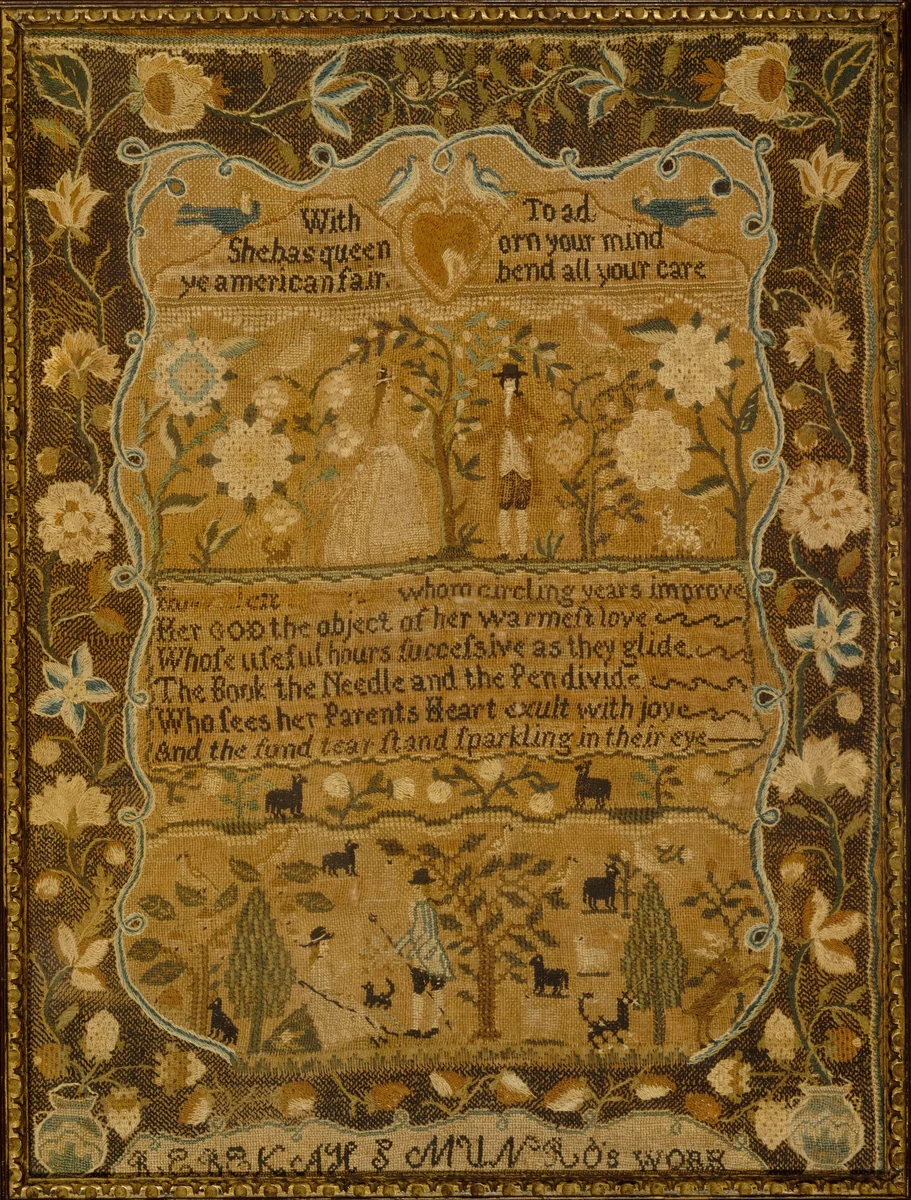 With
Shebas queen
ye american fair.
To ad
orn your mind
bend all your care
whom circling years improve
Her GOD the object of her warmeſt love
Whoſe uſeful hours ſucceſsive as they glide
The Book the Needle and the Pen divide
Who ſees her Parents Heart exult with joye
And the fond tear ſtand ſparkling in their eye
REBEKAH S MUNRO's WORK